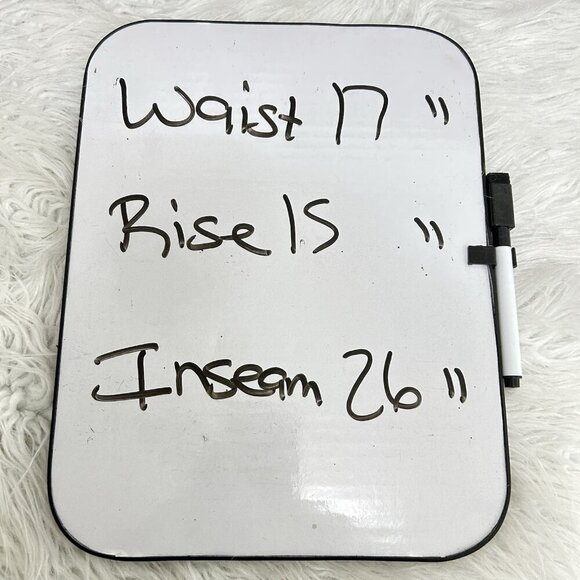 Waist 17 "
Rise 15 "
Inseam 26 "